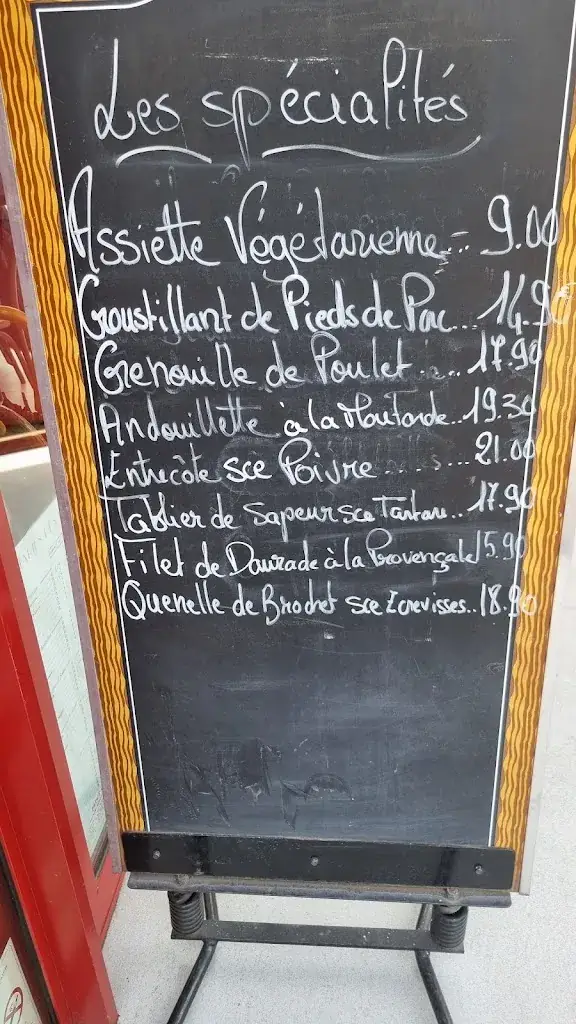 Les spécialités
Assiette Végétarienne... 9.00
Croustillant de Pieds de Porc... 14.90
Grenouille de Poulet .... 17.90
Andouillette à la Moutarde.. 19.30
Entrecôte sce Poivre ....... 21.00
Tablier de Sapeur sce Tartare.. 17.90
Filet de Daurade à la Provençale 15.90
Quenelle de Brochet sce Ecrevisses.. 18.90